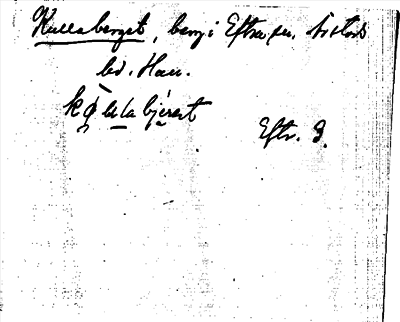 Kullaberget, berg i Eftra sn. Årstads
hd. Hall.
kọ̀lla bjérẹt
Eftr. 3.